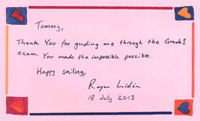 Tommy,
Thank You for guiding me through the Grade 8
exam. You made the impossible possible.
Happy smiling,
18 July 2013